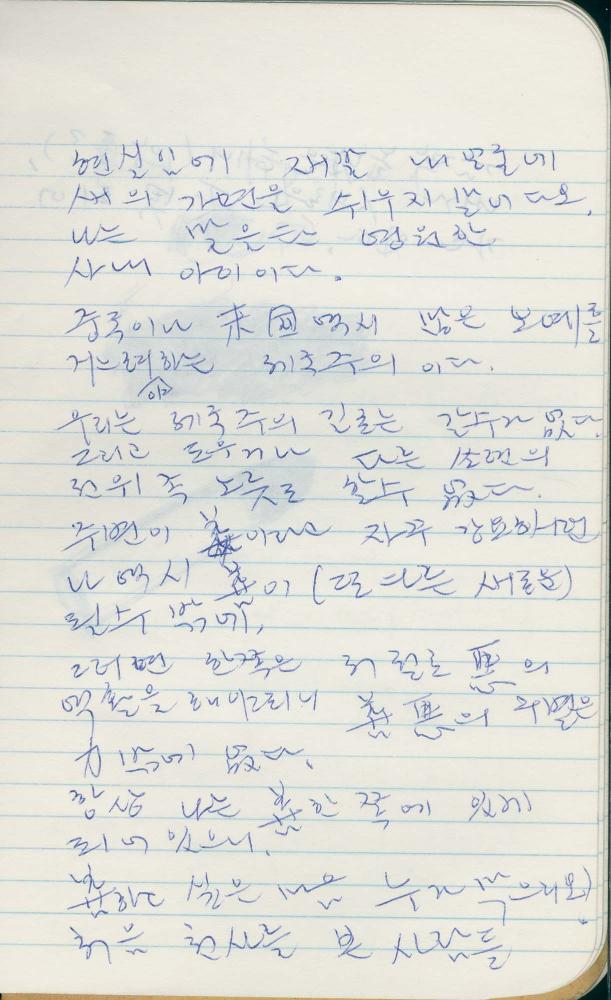 현실임에 내 모를에
새의 가면을 쉬우지 말아 다오.
나는 영원한
사내 아이이다.
중국이나 未國 역시 많은 노예를
거느려 하는 제국주의 이다.
야
우리는 제국주의 길로는 갈수가 없다.
그리고 도우거나 다른 쏘련의
전위족 노릇도 할수 없다.
주변이 善이라고 자꾸 강요하면
나 역시 善이 (또 다른 새로운)
될수 밖에,
그러면 한쪽은 저절로 惡의
역활을 해야그러니 善惡의 구별은
힘 밖에 없다.
항상 나는 善한 쪽에 있게
되어 있으니,
善하고 싶은 마음 누가 막으리오!
처음 천사를 본 사람들